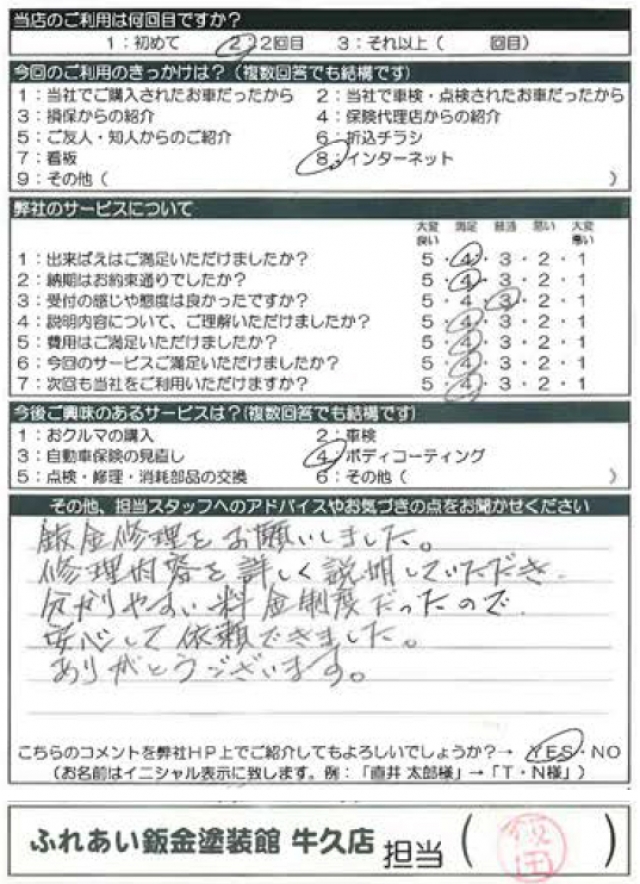 当店のご利用は何回目ですか？
1：初めて 2：2回目 3：それ以上（ 回目）
今回のご利用のきっかけは？（複数回答でも結構です）
1：当社でご購入されたお車だったから 2：当社で車検・点検されたお車だったから
3：損保からの紹介 4：保険代理店からの紹介
5：ご友人・知人からのご紹介 6：折込チラシ
7：看板 8：インターネット
9：その他（ ）
弊社のサービスについて
大変良い 満足 普通 悪い 大変悪い
1：出来ばえはご満足いただけましたか？ 5・4・3・2・1
2：納期はお約束通りでしたか？ 5・4・3・2・1
3：受付の感じや態度は良かったですか？ 5・4・3・2・1
4：説明内容について、ご理解いただけましたか？ 5・4・3・2・1
5：費用はご満足いただけましたか？ 5・4・3・2・1
6：今回のサービスご満足いただけましたか？ 5・4・3・2・1
7：次回も当社をご利用いただけますか？ 5・4・3・2・1
今後ご興味のあるサービスは？（複数回答でも結構です）
1：おクルマの購入 2：車検
3：自動車保険の見直し 4：ボディコーティング
5：点検・修理・消耗部品の交換 6：その他（ ）
その他、担当スタッフへのアドバイスやお気づきの点をお聞かせください
鈑金修理をお願いしました。
修理内容を詳しく説明していただき、
分かりやすい料金制度だったので
安心して依頼できました。
ありがとうございます。
こちらのコメントを弊社HP上でご紹介してもよろしいでしょうか？→ YES・NO
（お名前はイニシャル表示に致します。例：「直井 太郎様」→「T・N様」）
ふれあい鈑金塗装館 牛久店 担当（ ）